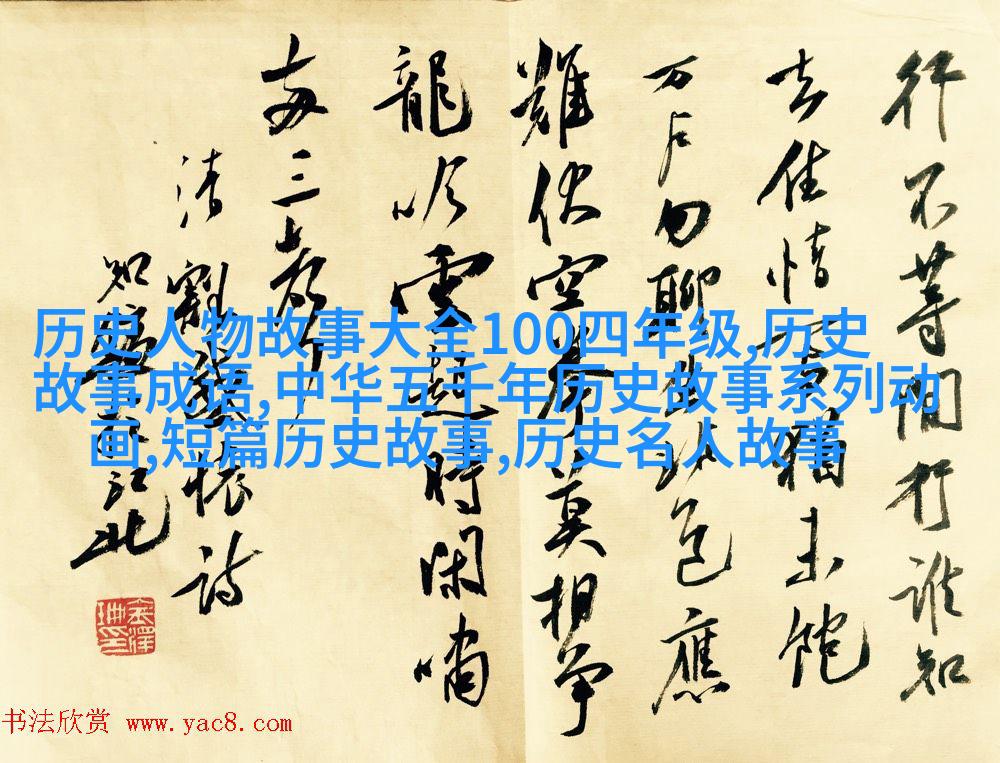 行不等閒行誰知
去住情一瓢猶未飽
万户勿聊生
色應
難伏空拳莫相爭
龍吟雲起時閑嘯
两三聲
清劉
振詩
江北
历史人物故事大全100四年级,历史
故事成语,中华五千年历史故事系列动
画,短篇历史故事,历史名人故事
书法欣赏 www.yac8.com